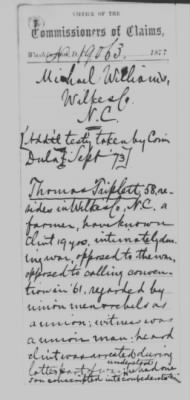 OFFICE OF THE
Commissioners of Claims,
Washington, 1877
19063
Michael Williams,
Wilkes Co.
N.C.
[Addl testy taken by Com
Dula Sept 73]
Thomas Triplett, 58, re-
sides in Wilkes Co, N.C., a
farmer, have known
clmt 19 yrs, intimately du-
ing war, opposed to the war,
opposed to calling conven-
tion in '61, regarded by
union men & rebels as
a union; witness was
a union man; heard
clmt was arrested during
latter part of war; understood
he had one
son conscripted into confederate